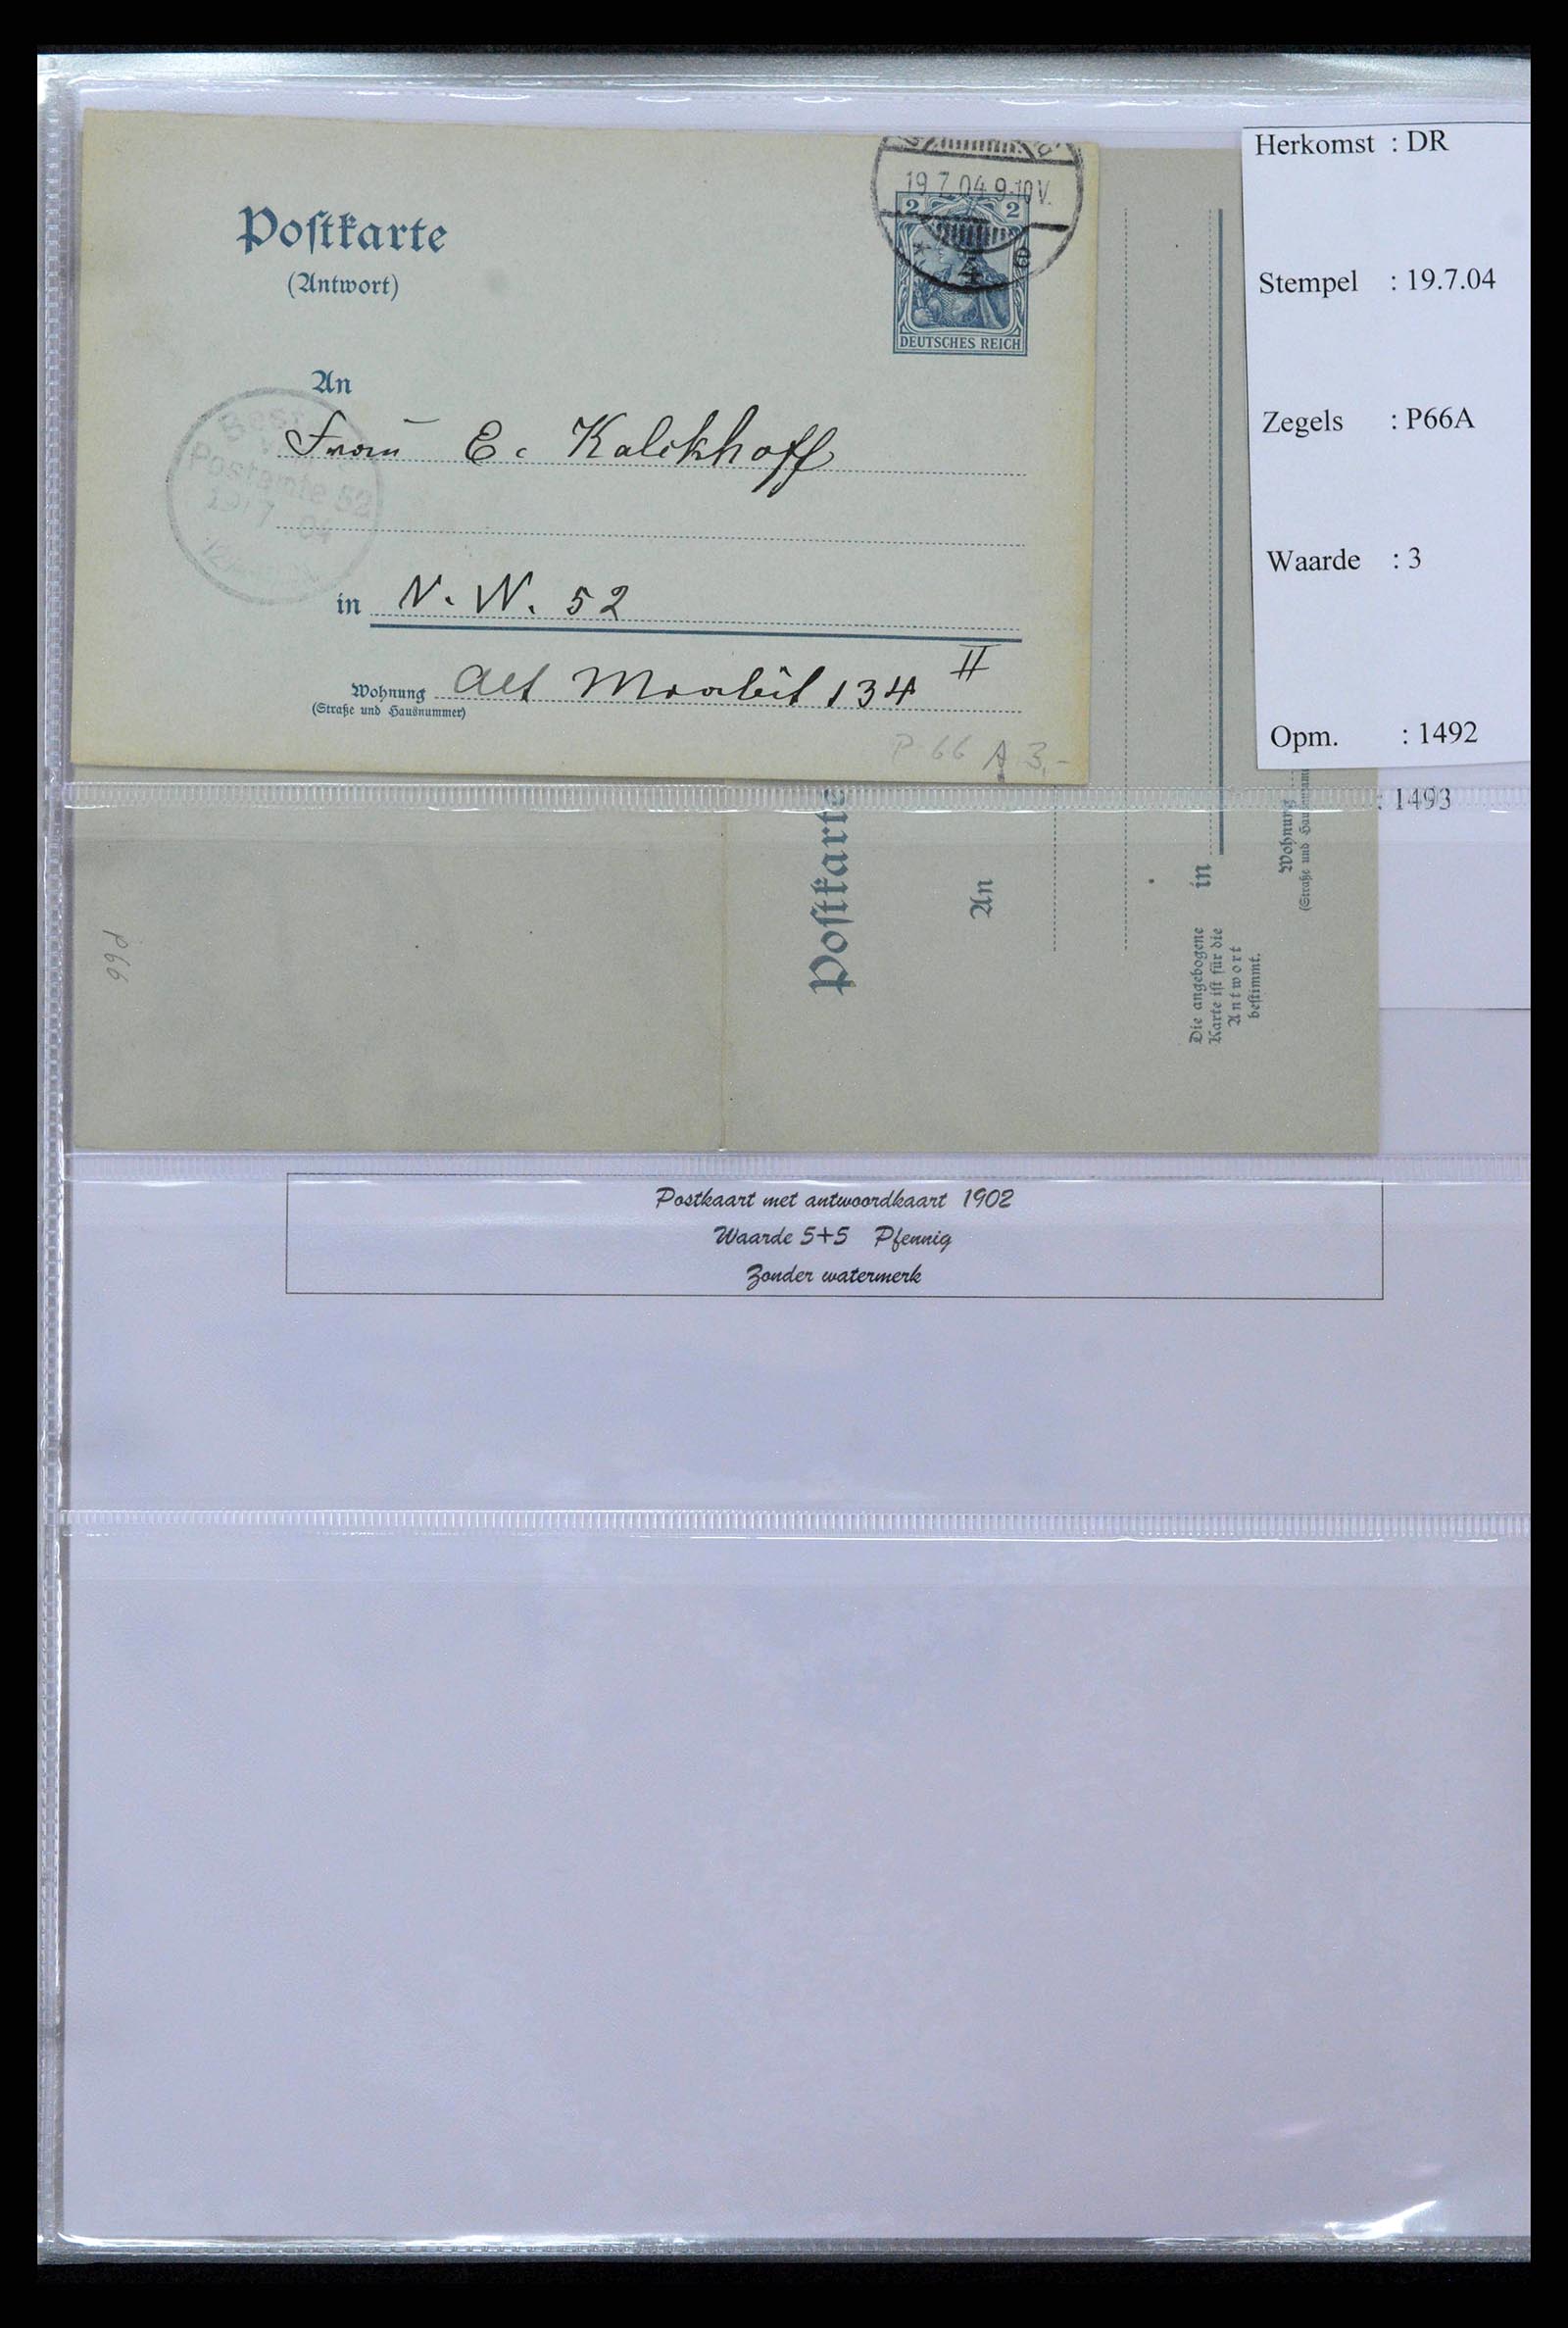 Postkarte
(Antwort)
19.7.04.9-10V.
* 4 e
2 2
DEUTSCHES REICH
An
Frau E. Kalckhoff
Best
Postamte 52
19/7 04
in N. W. 52
Wohnung Alt Moabit 134 II
(Straße und Hausnummer)
P 66 A 3,-
Herkomst : DR
Stempel : 19.7.04
Zegels : P66A
Waarde : 3
Opm. : 1492
: 1493
P66
Postkarte
An
in
Wohnung
(Straße und
Die angebogene
Karte ist für die
Antwort
bestimmt.
Postkaart met antwoordkaart 1902
Waarde 5+5 Pfennig
Zonder watermerk